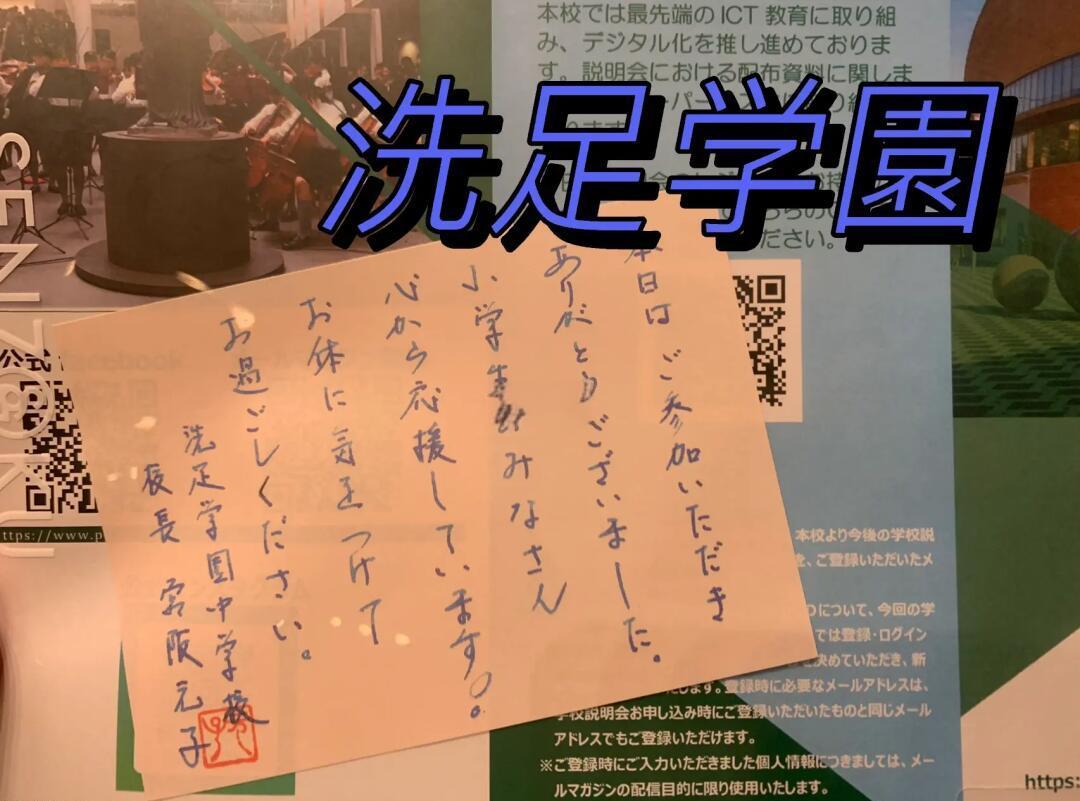 洗足学園
本校では最先端のICT教育に取り組
み、デジタル化を推し進めておりま
す。説明会における配布資料に関しま
ださい。
本日は ご参加いただき
ありがとうございました。
小学生の みなさん
心から応援しています。
お体に気をつけて
お過ごしください。
洗足学園中学校
校長 宮阪元子
SENZOKU
公式 facebook
https://www.p
本校より今後の学校説
ご登録いただいたメ
について、今回の学
では登録・ログイン
を決めていただき、新
たします。登録時に必要なメールアドレスは、
学校説明会お申し込み時にご登録いただいたものと同じメール
アドレスでもご登録いただけます。
※ご登録時にご入力いただきました個人情報につきましては、メー
ルマガジンの配信目的に限り使用いたします。
https: